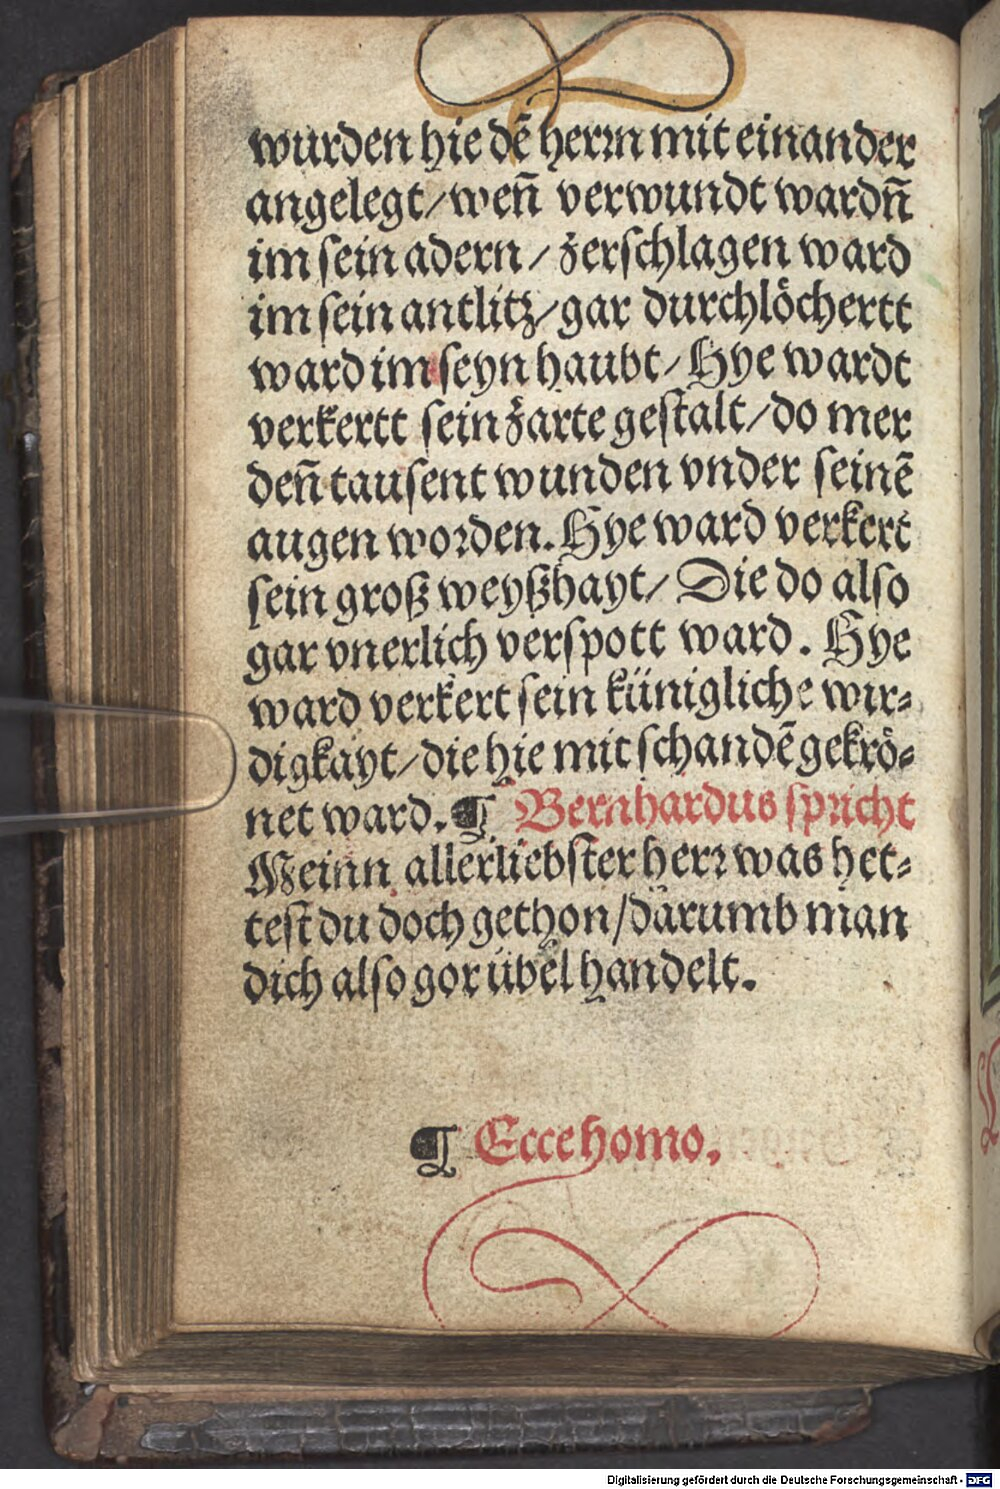 wurden hie dē herrn mit einander
angelegt/wen̄ verwundt wardn̄
im sein adern/ zerschlagen ward
im sein antlitz/gar durchlöchertt
ward im seyn haubt/Hye wardt
verkertt sein zarte gestalt/do mer
den̄ tausent wunden vnder seinē
augen worden. Hye ward verkert
sein groß weyßhayt/ Die do also
gar vnerlich verspott ward. Hye
ward verkert sein künigliche wir-
digkayt/die hie mit schandē gekrö-
net ward. ¶ Bernhardus spricht
Meinn allerliebster herr was het-
test du doch gethon/darumb man
dich also gor übel handelt.
¶ Ecce homo.
Digitalisierung gefördert durch die Deutsche Forschungsgemeinschaft - DFG